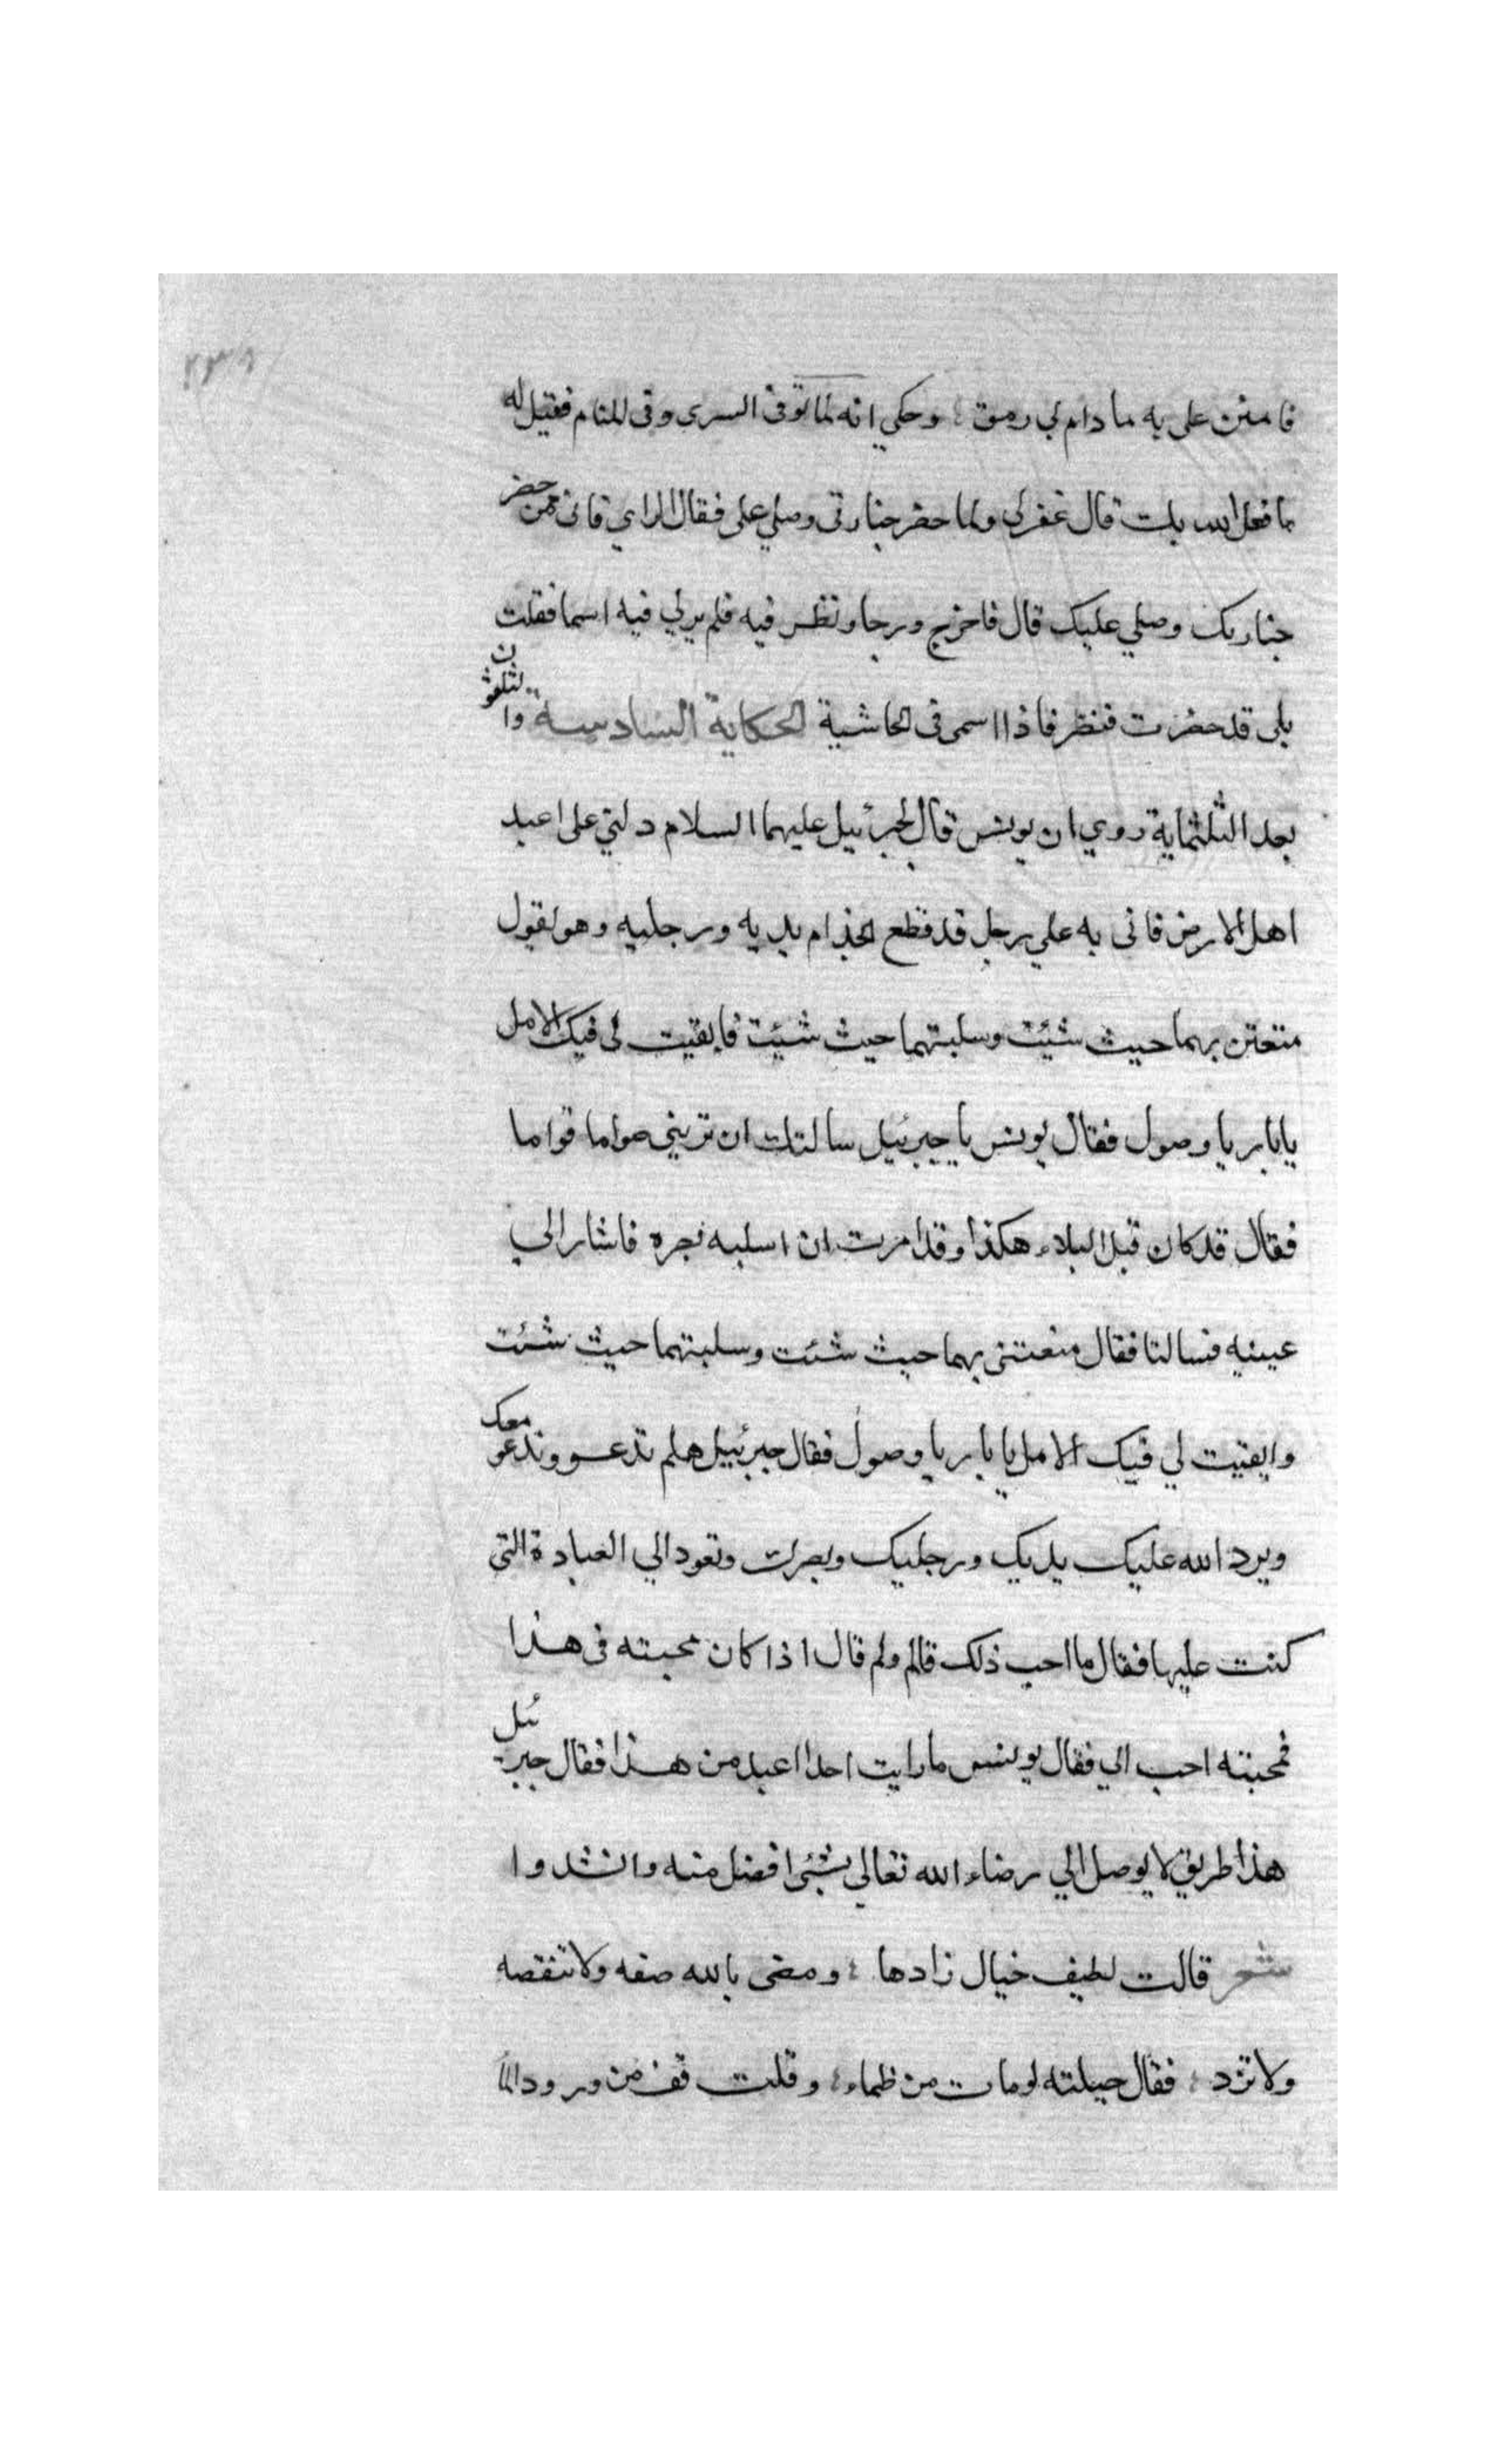 ٢٣٨
فامنن علي به ما دام لي رمق ؛ وحكي انه لما توفي السري وفي المنام فقيل له
ما فعل الله بك قال غفرلي ولما حضر جنازتي وصلي علي فقال الراي فاني ممن حضر
جنازتك وصلي عليك قال فاخرج درجا ونظر فيه فلم يرلي فيه اسما فقلت
بلي قد حضرت فنظر فاذا اسمي في الحاشية الحكاية السادسة والثلثون
بعد الثلثماية روي ان يونس قال لجبرئيل عليهما السلام دلني علي اعبد
اهل الارض فاتي به علي رجل قد قطع الجذام يديه ورجليه وهو يقول
متعتن بهما حيث شيئت وسلبتهما حيث شيئت فابقيت لي فيك الامل
يابار يا وصول فقال يونس يا جبرئيل سالتك ان تريني صواما قواما
فقال قد كان قبل البلاء هكذا وقد امرت ان اسلبه بصره فاشار الي
عينيه فسالتا فقال متعتني بهما حيث شئت وسلبتهما حيث شئت
وابقيت لي فيك الامل يا بار يا وصول فقال جبرئيل هلم تدعو وندعو معك
ويرد الله عليك يديك ورجليك وبصرك وتعود الي العبادة التي
كنت عليها فقال ما احب ذلك قالم ولم قال اذا كان محبته في هذا
فمحبته احب الي فقال يونس ما رايت احدا اعبد من هذا فقال جبرئيل
هذا طريق لا يوصل الي رضاء الله تعالي بشئ افضل منه وانشدوا
شعر قالت لطيف خيال زادها ؛ ومضي بالله صفه ولا تنقصه
ولا تزد ؛ فقال خلته لومات من ظماء ؛ وقلت قف من ورود الما